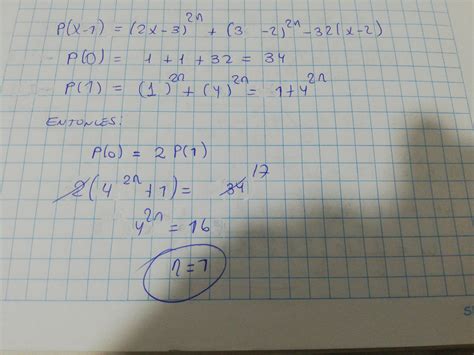 P(x-1) = (2x-3)^2n + (3 -2)^2n -32(x-2)
P(0) = 1 + 1 + 32 = 34
P(1) = (1)^2n + (4)^2n = 1+4^2n
ENTONCES:
P(0) = 2 P(1)
2(4^2n+1) = 34 17
4^2n = 16
n=1